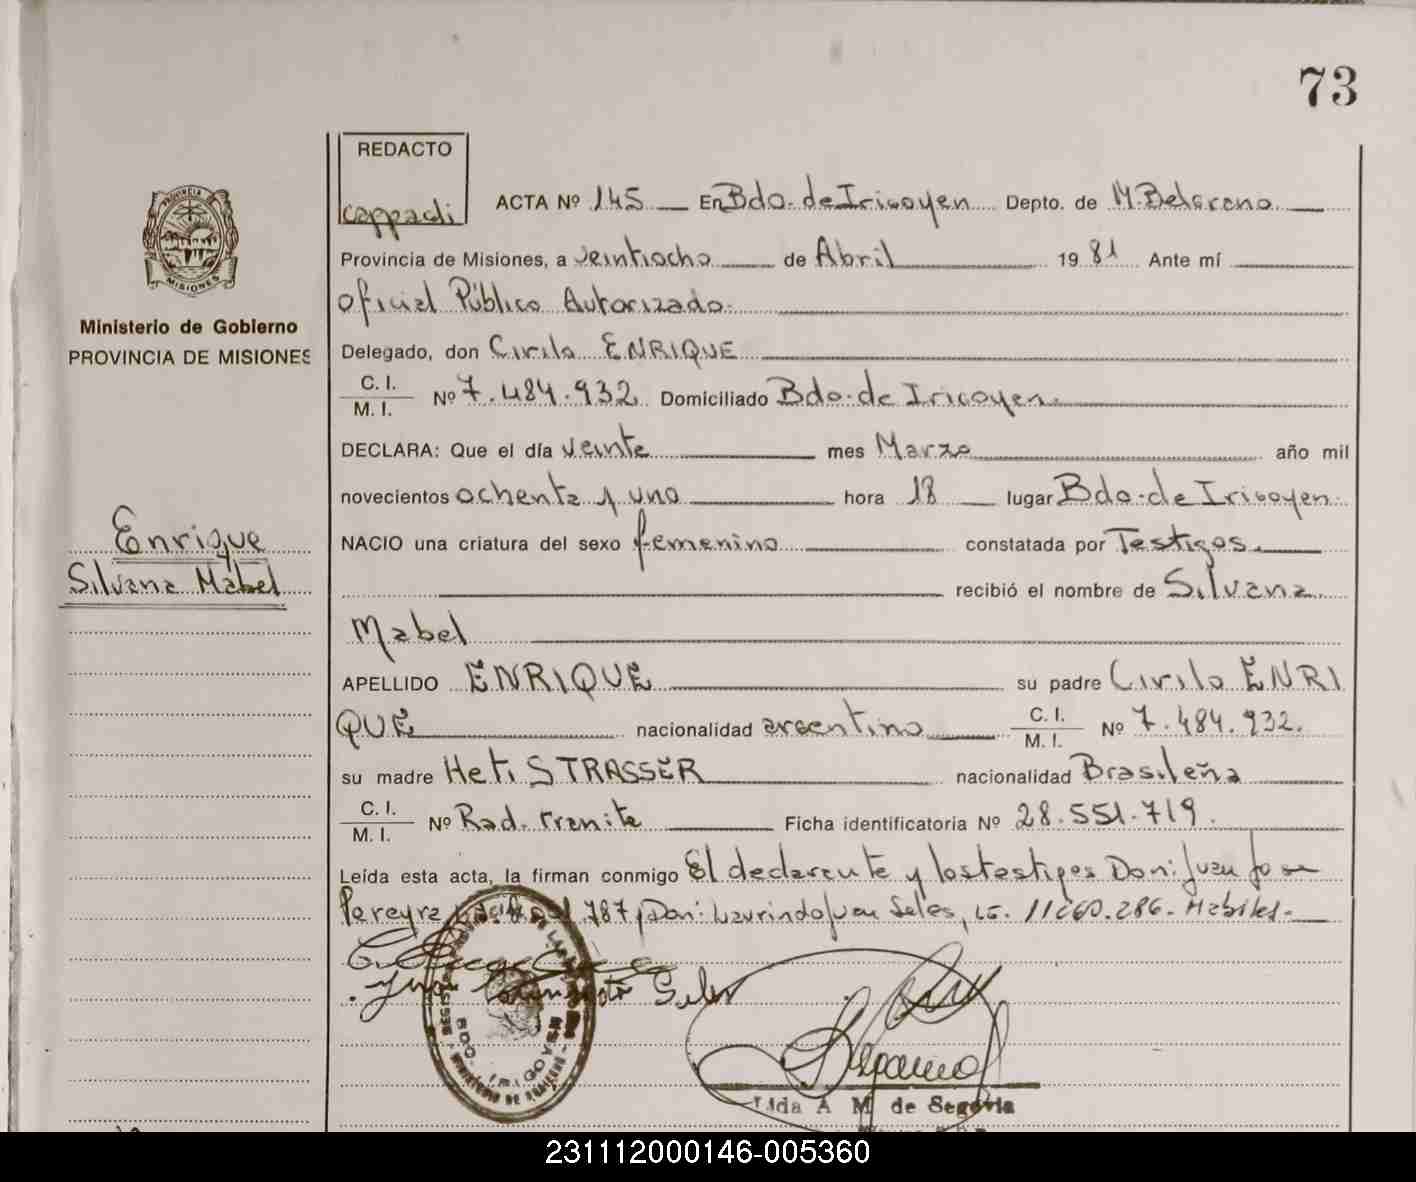 73
REDACTO
cappadi
ACTA Nº 145 En Bdo. de Irigoyen Depto. de M. Belgrano
Provincia de Misiones, a veintiocho de Abril 1981 Ante mí
Oficial Público Autorizado.
Delegado, don Cirilo ENRIQUE
C. I.
M. I.
Nº 7.484.932 Domiciliado Bdo. de Irigoyen.
DECLARA: Que el día veinte mes Marzo año mil
novecientos ochenta y uno hora 18 lugar Bdo. de Irigoyen.
NACIO una criatura del sexo femenino constatada por Testigos.
recibió el nombre de Silvana
Mabel
APELLIDO ENRIQUE su padre Cirilo ENRI
QUE nacionalidad argentino C. I. Nº 7.484.932.
M. I.
su madre Heti STRASSER nacionalidad Brasileña
C. I.
M. I.
Nº Rad. tramite Ficha identificatoria Nº 28.551.719.
Leída esta acta, la firman conmigo El declarante y los testigos Don: Juan Jose
Pereyra 787, Don: Laurindo Juan Seles, 11260.286. Habiles.
Lida A M de Segovia
PROVINCIA
MISIONES
Ministerio de Gobierno
PROVINCIA DE MISIONES
Enrique
Silvana Mabel
BDO. IRIGOYEN
231112000146-005360